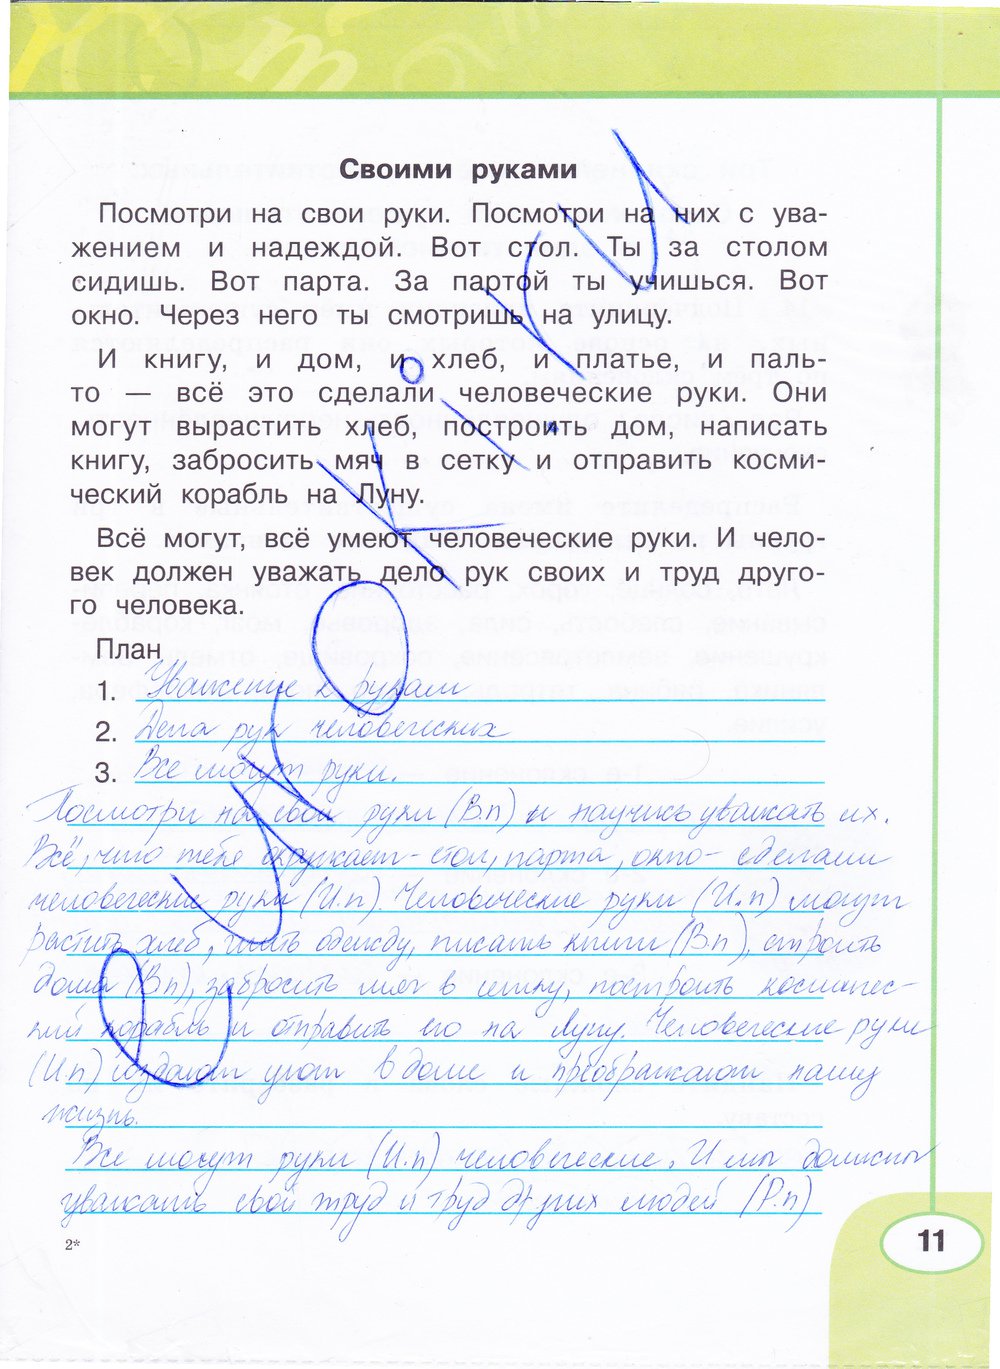 Своими руками
Посмотри на свои руки. Посмотри на них с ува-
жением и надеждой. Вот стол. Ты за столом
сидишь. Вот парта. За партой ты учишься. Вот
окно. Через него ты смотришь на улицу.
И книгу, и дом, и хлеб, и платье, и паль-
то — всё это сделали человеческие руки. Они
могут вырастить хлеб, построить дом, написать
книгу, забросить мяч в сетку и отправить косми-
ческий корабль на Луну.
Всё могут, всё умеют человеческие руки. И чело-
век должен уважать дело рук своих и труд друго-
го человека.
План
1. Уважение к рукам
2. Дела рук человеческих
3. Все могут руки.
Посмотри на свои руки (В.п) и научись уважать их.
Всё, что тебя окружает - стол, парта, окно - сделали
человеческие руки (И.п). Человеческие руки (И.п) могут
растить хлеб, шить одежду, писать книги (Вп), строить
дома (Вп), забросить мяч в сетку, построить космичес-
кий корабль и отправить его на Луну. Человеческие руки
(И.п) создают уют в доме и преображают нашу
жизнь.
Все могут руки (И.п) человеческие. И мы должны
уважать свой труд и труд других людей (Р.п)
2*
11